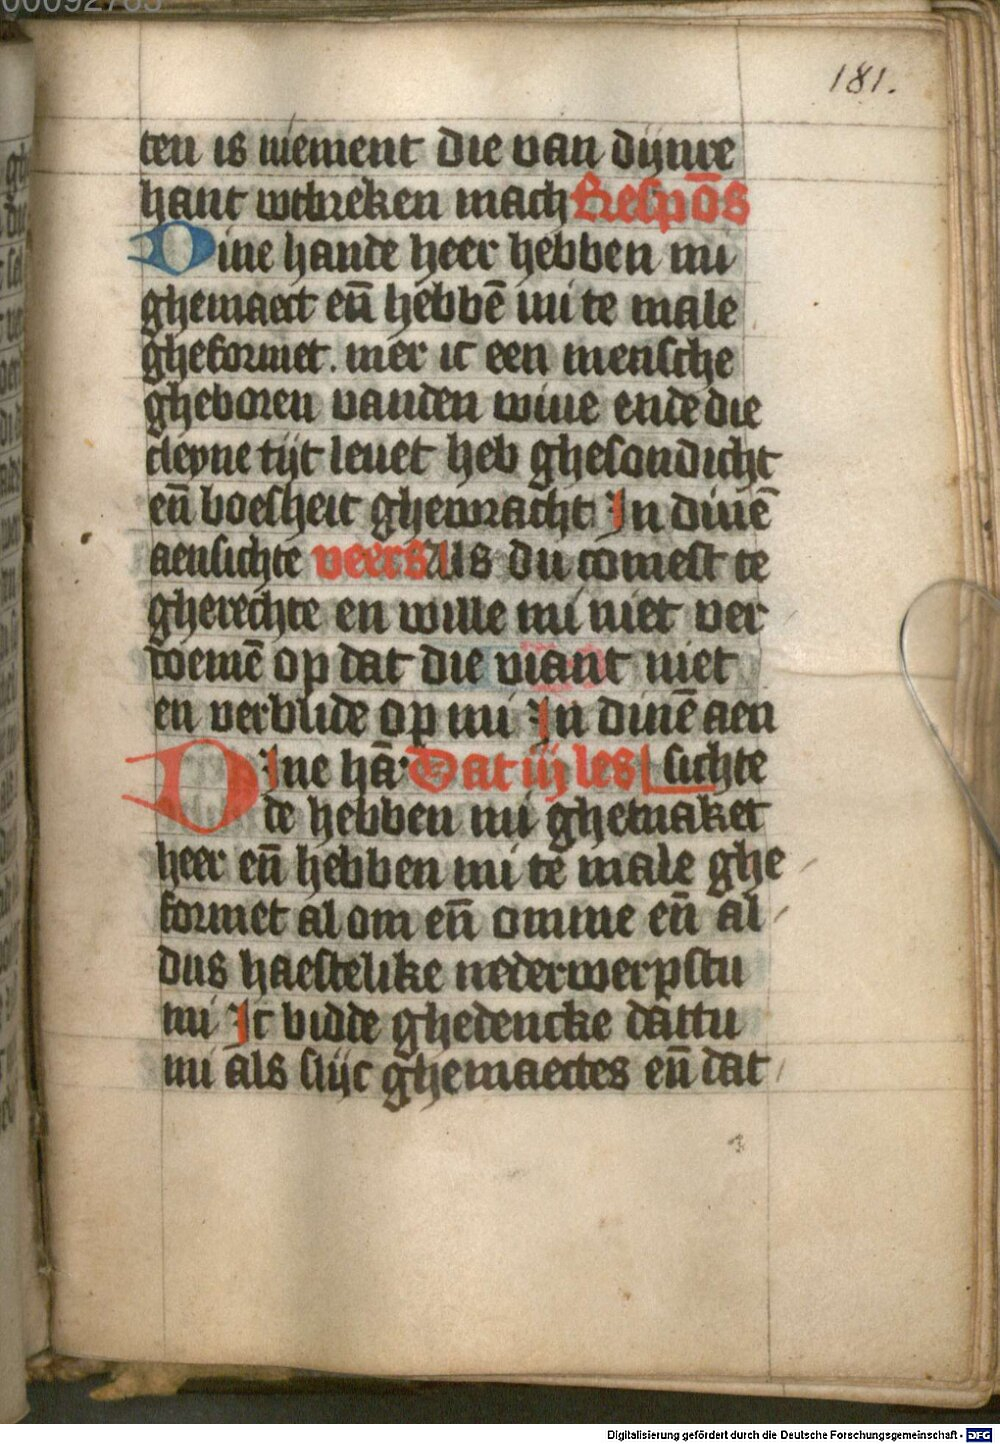 00092785
181.
ten is niement die van dijnre
hant wtbreken mach Respōs
Dine hande heer hebben mi
ghemaect eñ hebbē mi te male
gheformet. mer ic een mensche
gheboren vanden wiue ende die
cleyne tijt leuet heb ghesondicht
eñ boesheit ghewracht In dinē
aensichte veers Als du comest te
gherechte en wille mi niet ver
doemē op dat die viant niet
en verblide op mi In dinē aen
Dine hā Dat iij les sichte
de hebben mi ghemaket
heer eñ hebben mi te male ghe
formet al om eñ omme eñ al
dus haestelike nederwerpstu
mi Ic bidde ghedencke dattu
mi als slijc ghemaectes eñ dat
Digitalisierung gefördert durch die Deutsche Forschungsgemeinschaft - DFG